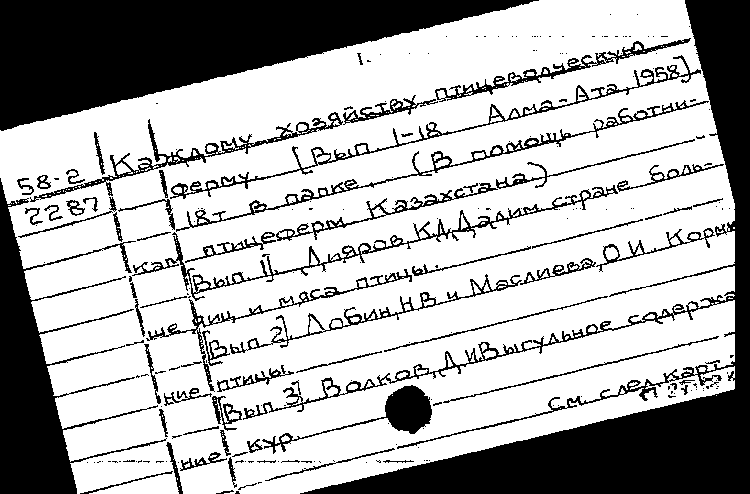 1.
58-2 Каждому хозяйству птицеводческую
2287 ферму. [Вып. 1-18. Алма-Ата, 1958].
18т в папке. (В помощь работни-
кам птицеферм Казахстана)
[Вып. 1]. Дияров, К.Д. Дадим стране боль-
ше яиц и мяса птицы.
[Вып 2]. Лобин, Н.В и Маслиева, О.И. Кормле
ние птицы.
[Вып 3]. Волков, Д.И. Выгульное содержа
ние кур.
см. след. карт.